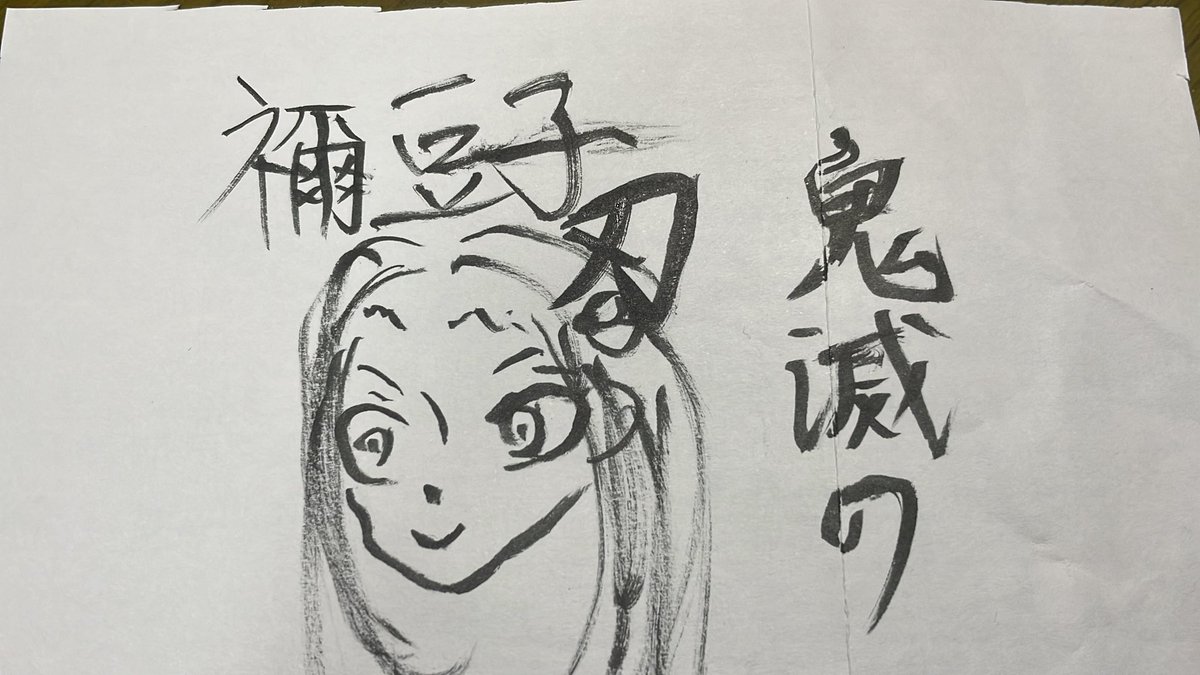 鬼滅の
刃
禰豆子